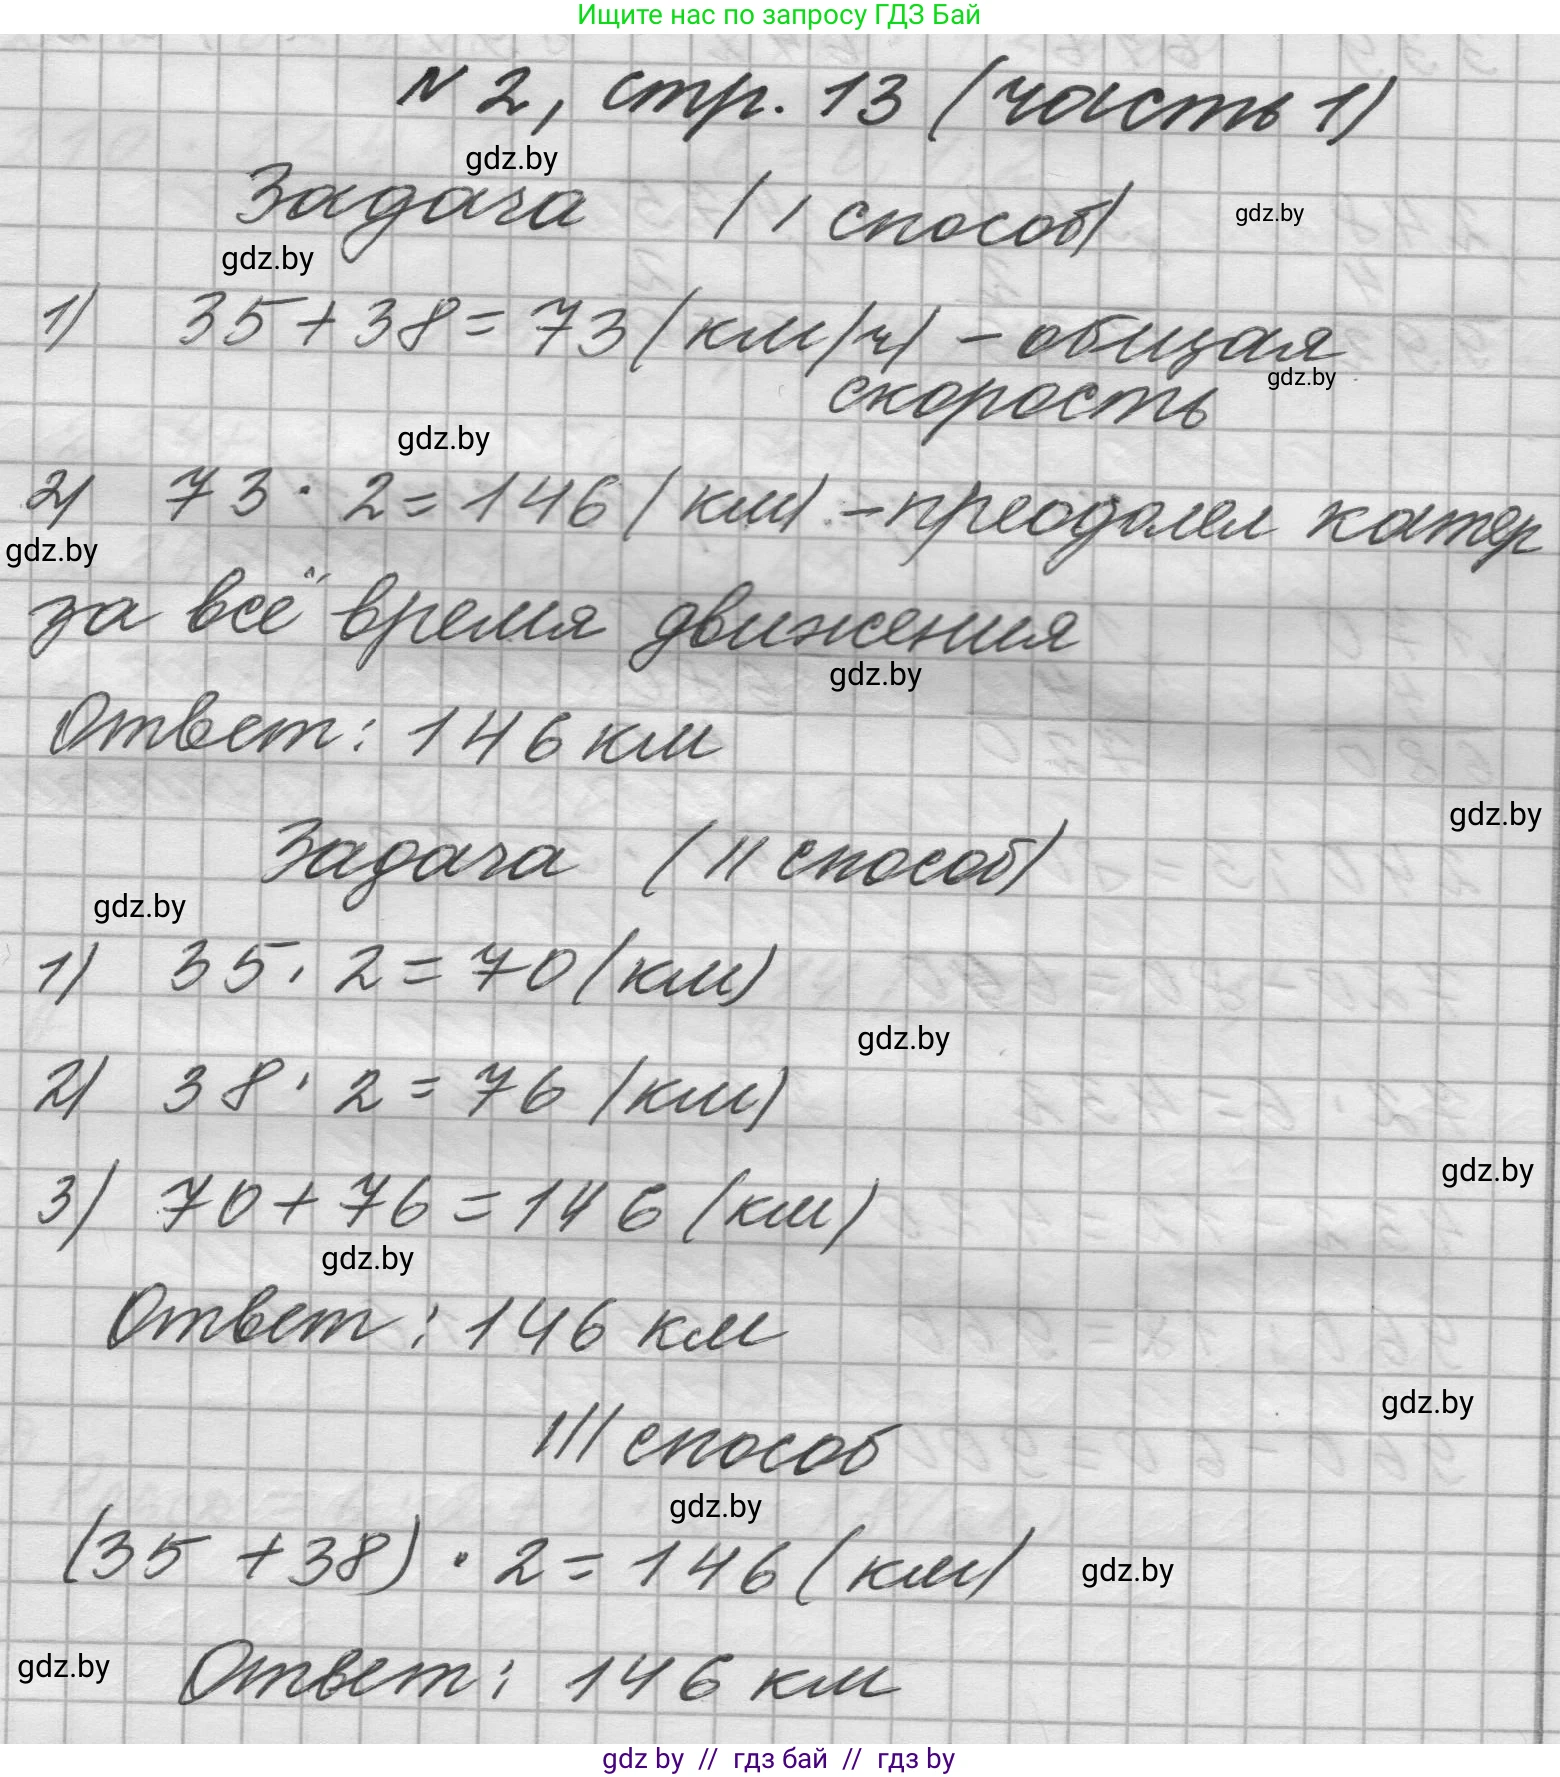 Ищите нас по запросу ГДЗ Бай
N 2, стр. 13 (часть 1)
gdz.by
Задача (I способ)
gdz.by
gdz.by
1) 35+38=73 (км/ч) - общая
gdz.by
скорость
gdz.by
2) 73 · 2=146 (км) - преодолел катер
gdz.by
за всё время движения
gdz.by
Ответ: 146 км
gdz.by
Задача (II способ)
gdz.by
1) 35 · 2=70 (км)
gdz.by
2) 38 · 2=76 (км)
gdz.by
3) 70+76=146 (км)
gdz.by
Ответ: 146 км
gdz.by
III способ
gdz.by
(35 +38) · 2=146 (км)
gdz.by
gdz.by
Ответ: 146 км
gdz by // гдз бай // гдз by